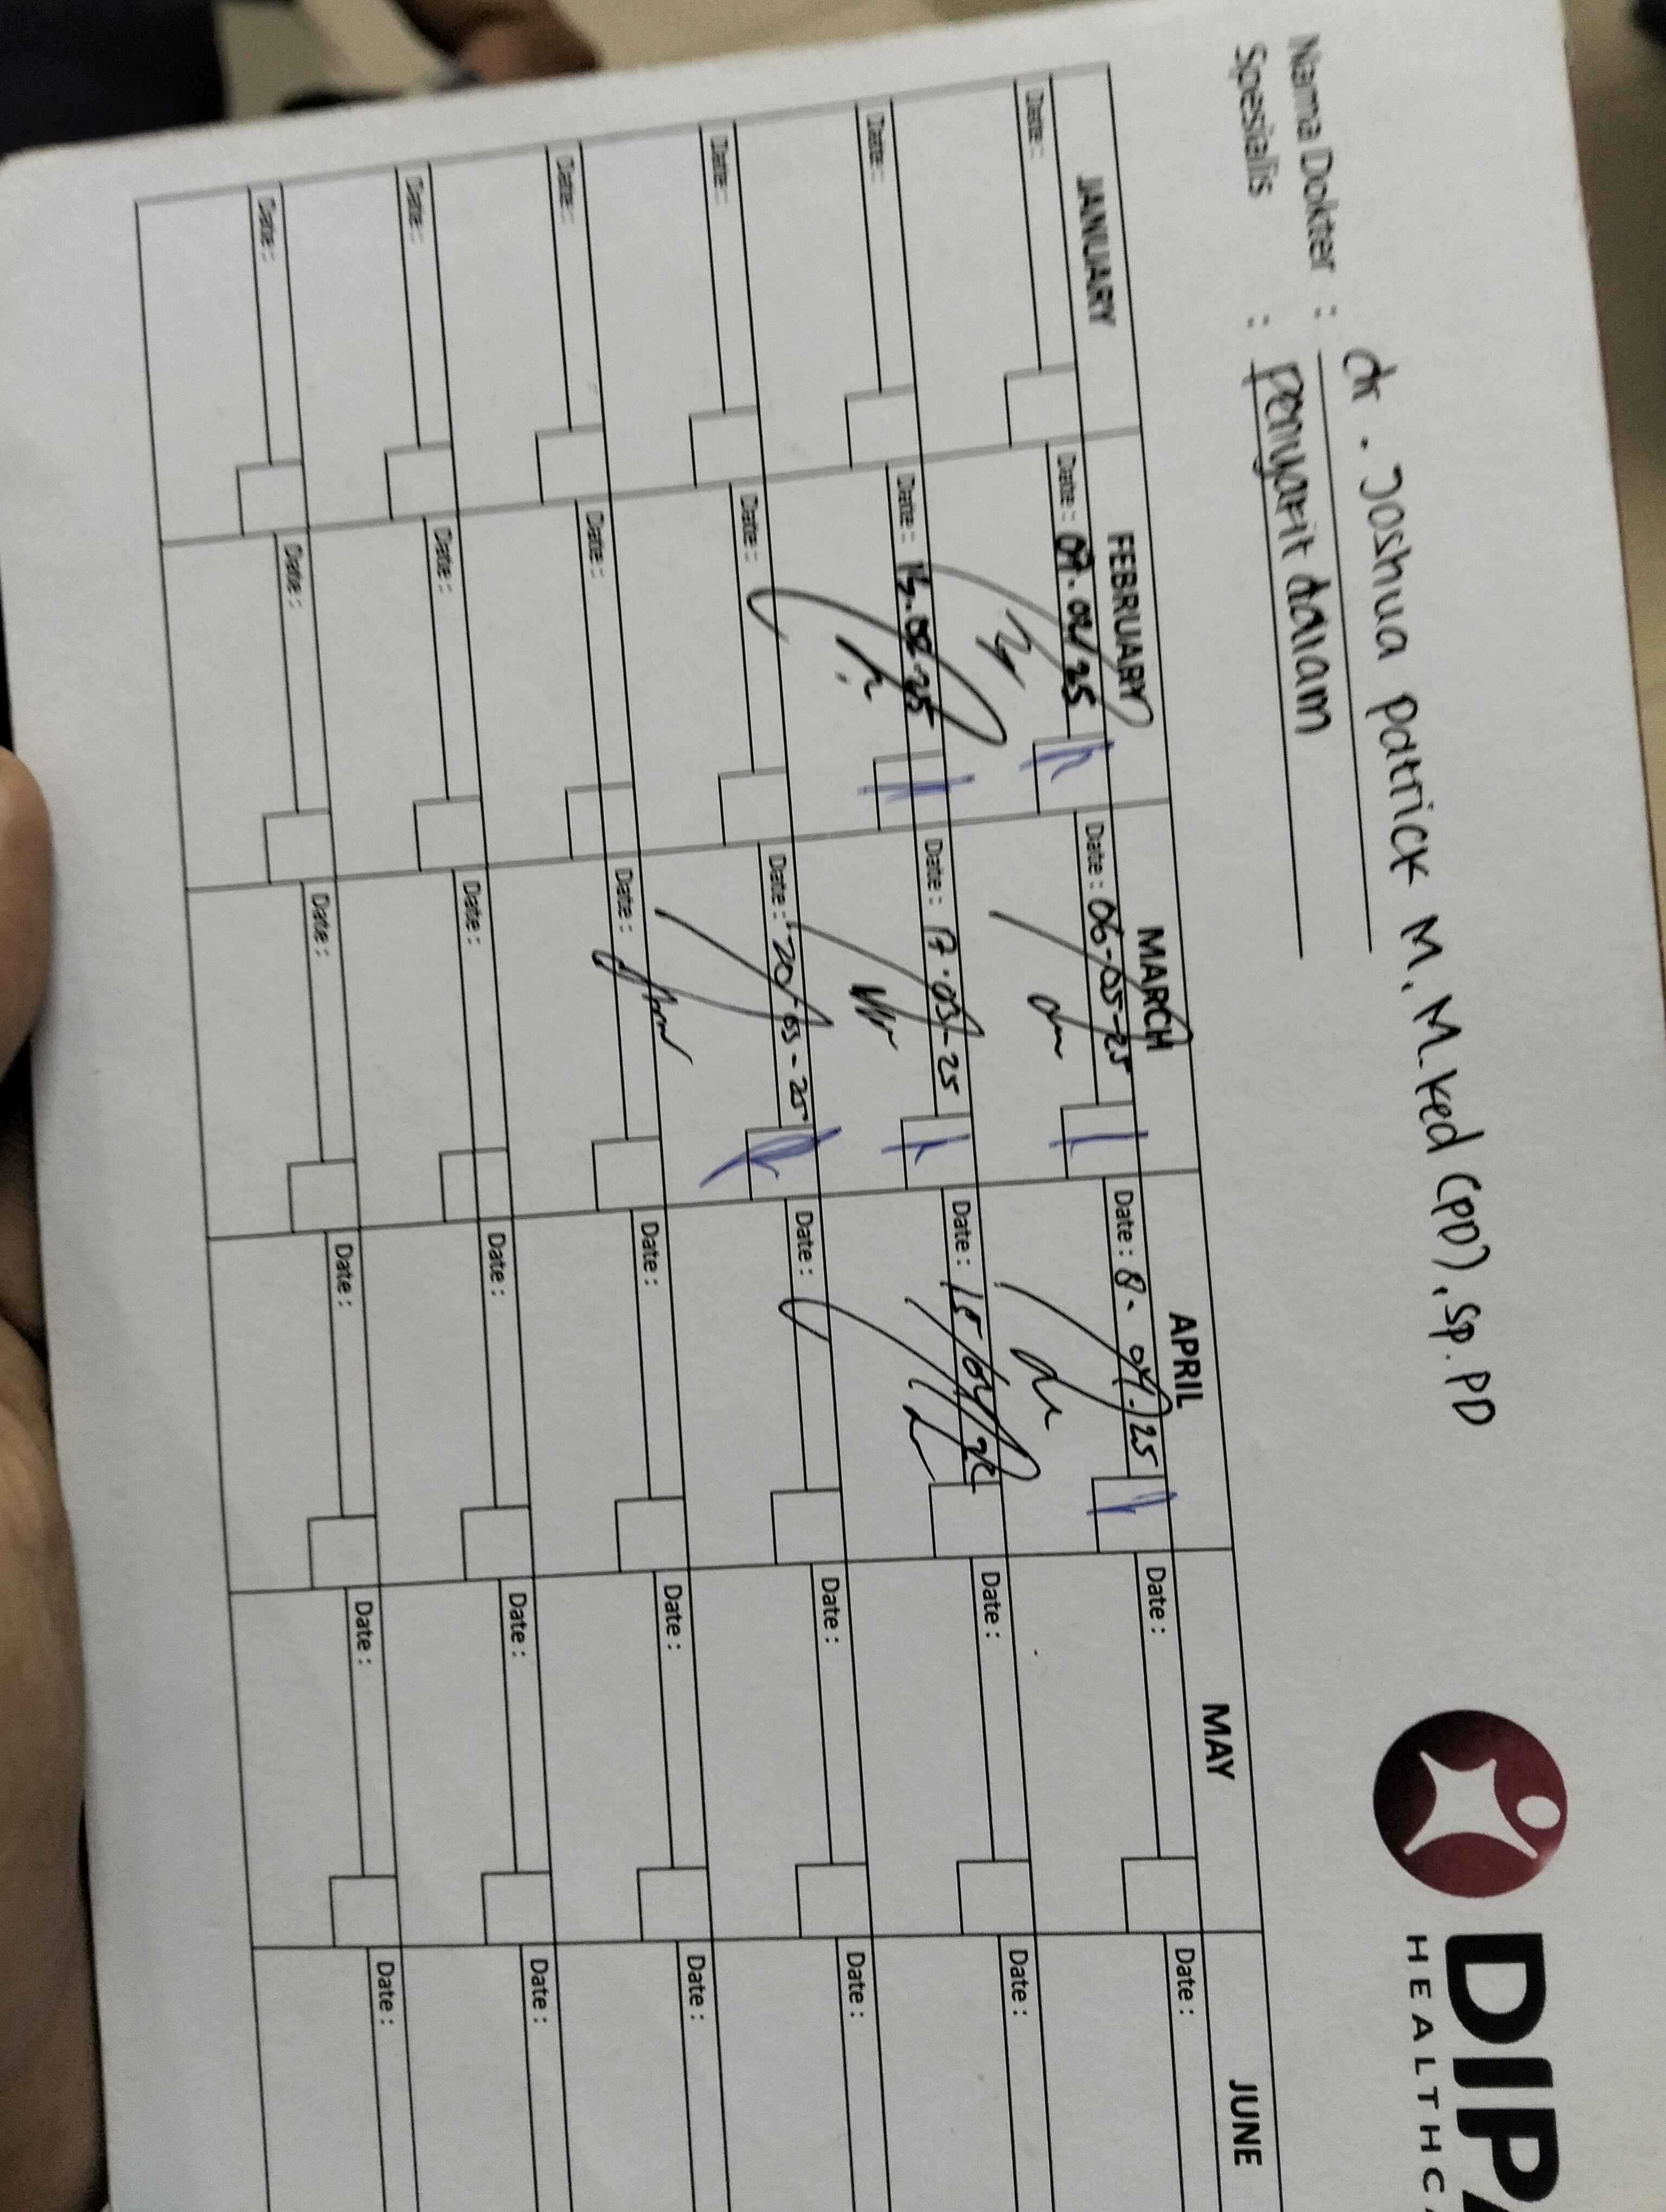 Nama Dokter : dr. Joshua Patrick M. M.Ked (PD), Sp.PD
Spesialis : Penyakit dalam
DIPA
HEALTHCA
JANUARY FEBRUARY MARCH APRIL MAY JUNE
Date : Date : Date : 06-03-25 Date : 8. 04. 25 Date : Date :
Date : Date : Date : 17-03-25 Date : 15/04/25 Date : Date :
Date : Date : Date : 20/03-25 Date : Date : Date :
Date : Date : Date : Date : Date : Date :
Date : Date : Date : Date : Date : Date :
Date : Date : Date : Date : Date : Date :